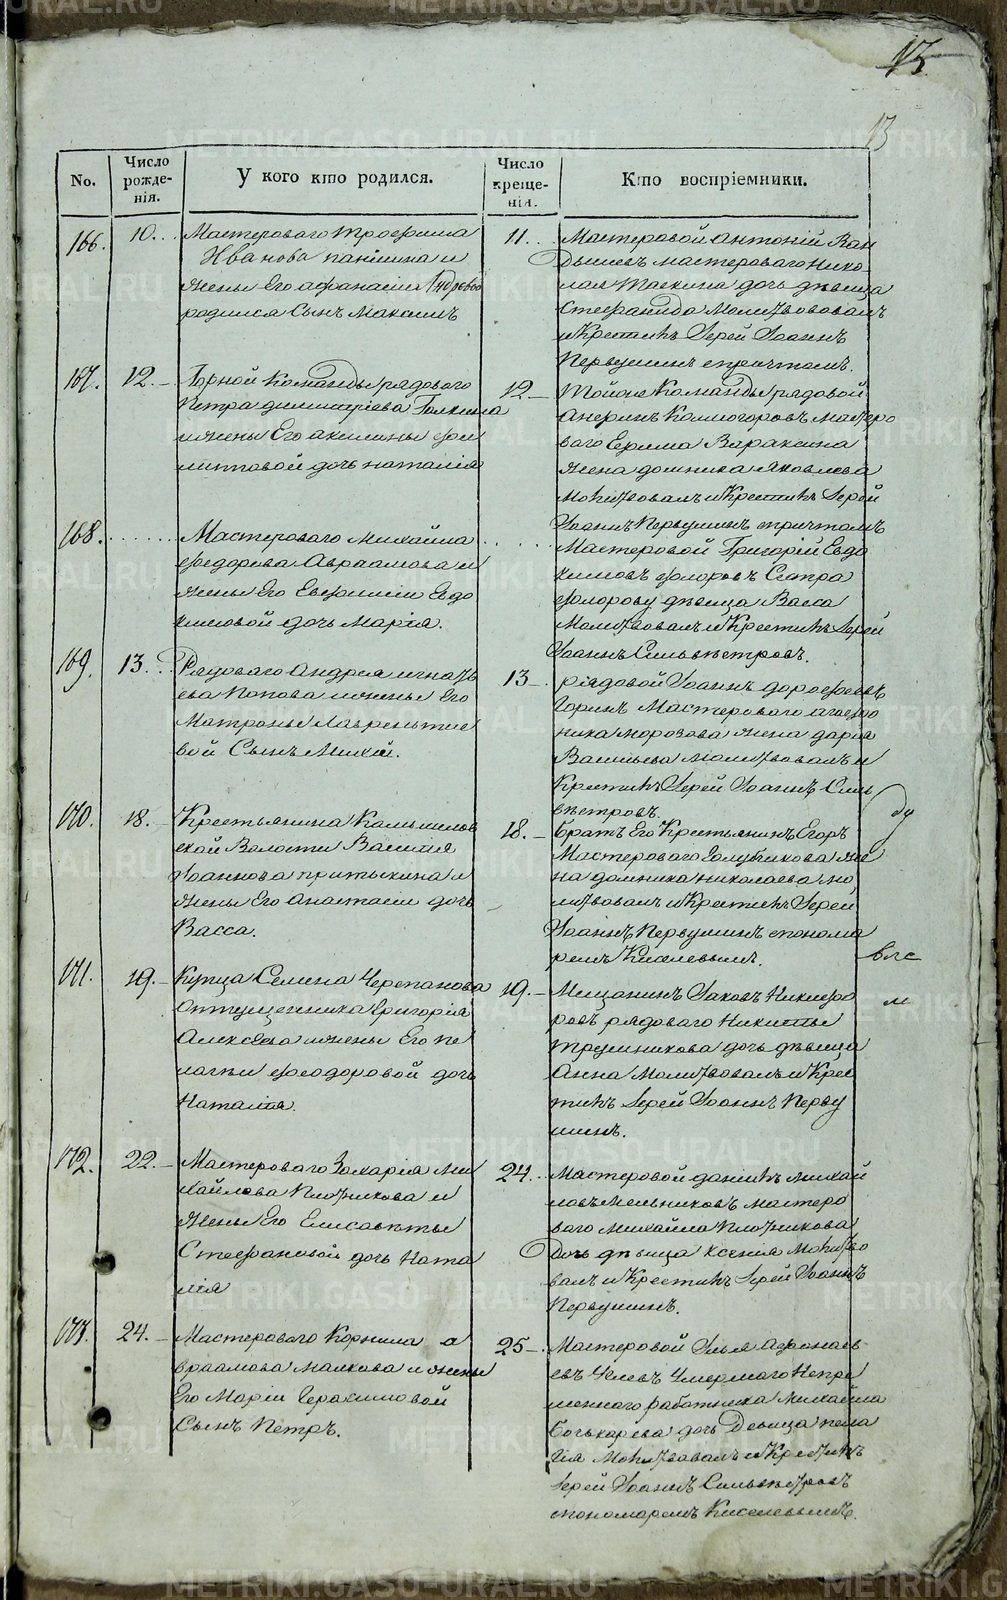 13
No.
Число рожденія.
У кого кто родился.
Число крещенія.
Кто воспріемники.
166.
10.
Мастероваго Трофима
Иванова Паншина и
жены Его Афанасіи
родился Сынъ Максимъ
11.
Мастеровой Антоній Кан
дышевъ мастероваго Нико
лая дочь дѣвица
Стефанида Молитвовалъ
и Крестилъ Іерей Іоаннъ
Первушинъ спричтомъ.
167.
12.
Горной Команды рядоваго
Петра Димитріева
и жены Его Акилины Фи
липповой дочь Наталія
12
Тойже Команды рядовой
Колмогоровъ Мастеро
ваго Ермила Вараксина
жена Домника Яковлева
Молитвовалъ и Крестилъ Іерей
Іоаннъ Первушинъ спричтомъ
168.
Мастероваго Михайла
Федорова Авраамова и
жены Его Евфиміи Евдо
кимовой дочь Марія.
Мастеровой Григорій Евдо
кимовъ Флоровъ Сестра
Флорову дѣвица Васса
Молитвовалъ и Крестилъ Іерей
Іоаннъ Сильвестровъ.
169.
13.
Рядоваго Андрея Игнать
ева Попова и жены Его
Матроны Лаврентіе
вой Сынъ
13
рядовой Іоаннъ Дорофеевъ
Горинъ Мастероваго Агафо
ника Морозова жена Дарья
Васильева Молитвовалъ и
Крестилъ Іерей Іоаннъ Силь
вестровъ.
170.
18.
Крестьянина
ской Волости Василія
Іоаннова Притыкина и
жены Его Анастасіи дочь
Васса.
18.
братъ Его Крестьянинъ Егоръ
Мастероваго Голубчикова же
на Домника Николаева Мо
литвовалъ и Крестилъ Іерей
Іоаннъ Первушинъ спонома
ремъ Киселевымъ.
171.
19.
Купца Семена Черепанова
Отпущенника Григорія
Алексѣева и жены Его Пе
лагеи Феодоровой дочь
Наталія.
19.
Мещанинъ Іаковъ Никифо
ровъ рядоваго Никиты
Трушникова дочь дѣвица
Анна Молитвовалъ и Крес
тилъ Іерей Іоаннъ Перву
шинъ.
172.
22.
Мастероваго Захарія Ми
хайлова Плотникова и
жены Его Елисаветы
Стефановой дочь Ната
лія
24.
Мастеровой Данилъ Михай
ловъ Мельниковъ мастеро
ваго Михайла Плотникова
дочь дѣвица Ксенія Молитво
валъ и Крестилъ Іерей Іоаннъ
Первушинъ.
173.
24.
Мастероваго Корнила А
враамова Малкова и жены
Его Маріи Герасимовой
Сынъ Петръ.
25
Мастеровой Илья Афонась
евъ Умершаго Непре
меннаго работника Михайла
дочь Девица Пела
гія Молитвовалъ и Крестилъ
Іерей Іоаннъ Сильвестровъ
спономаремъ Киселевымъ.
METRIKI.GASO-URAL.RU